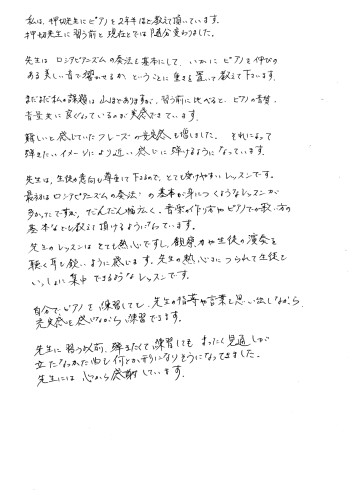 私は、押切先生にピアノを2年半ほど教えて頂いています。
押切先生に習う前と現在とでは随分変わりました。
先生は ロシアピアニズムの奏法を基本にして、いかに ピアノを伸びの
ある美しい音で響かせるか ということに 重きを置いて教えて下さいます。
まだまだ私の課題は 山ほどありますが、習う前に比べると、ピアノの音質、
音量共に 良くなっているのが実感できています。
難しいと感じていたフレーズの充実感も増しました。 それによって
弾きたいイメージにより近い感じに弾けるようになっています。
先生は、生徒の意向も尊重して下さるので、とても受けやすいレッスンです。
最初は ロシアピアニズムの奏法の基本が身につくようなレッスンが
多かったですが、だんだん幅広く、音楽の作り方やピアノでの歌い方の
基本なども教えて頂けるようになっています。
先生のレッスンは とても熱心ですし、観察力や生徒の演奏を
聴く耳も鋭いように感じます。先生の熱心さに つられて生徒も
いっしょに集中できるようなレッスンです。
自分で ピアノを練習しても、先生の指導や言葉を思い出しながら、
充実感を感じながら練習できます。
先生に 習う以前、弾きたくて練習しても まったく見通しが
立たなかった曲も何とか形になりそうになってきました。
先生には 心から感謝しています。